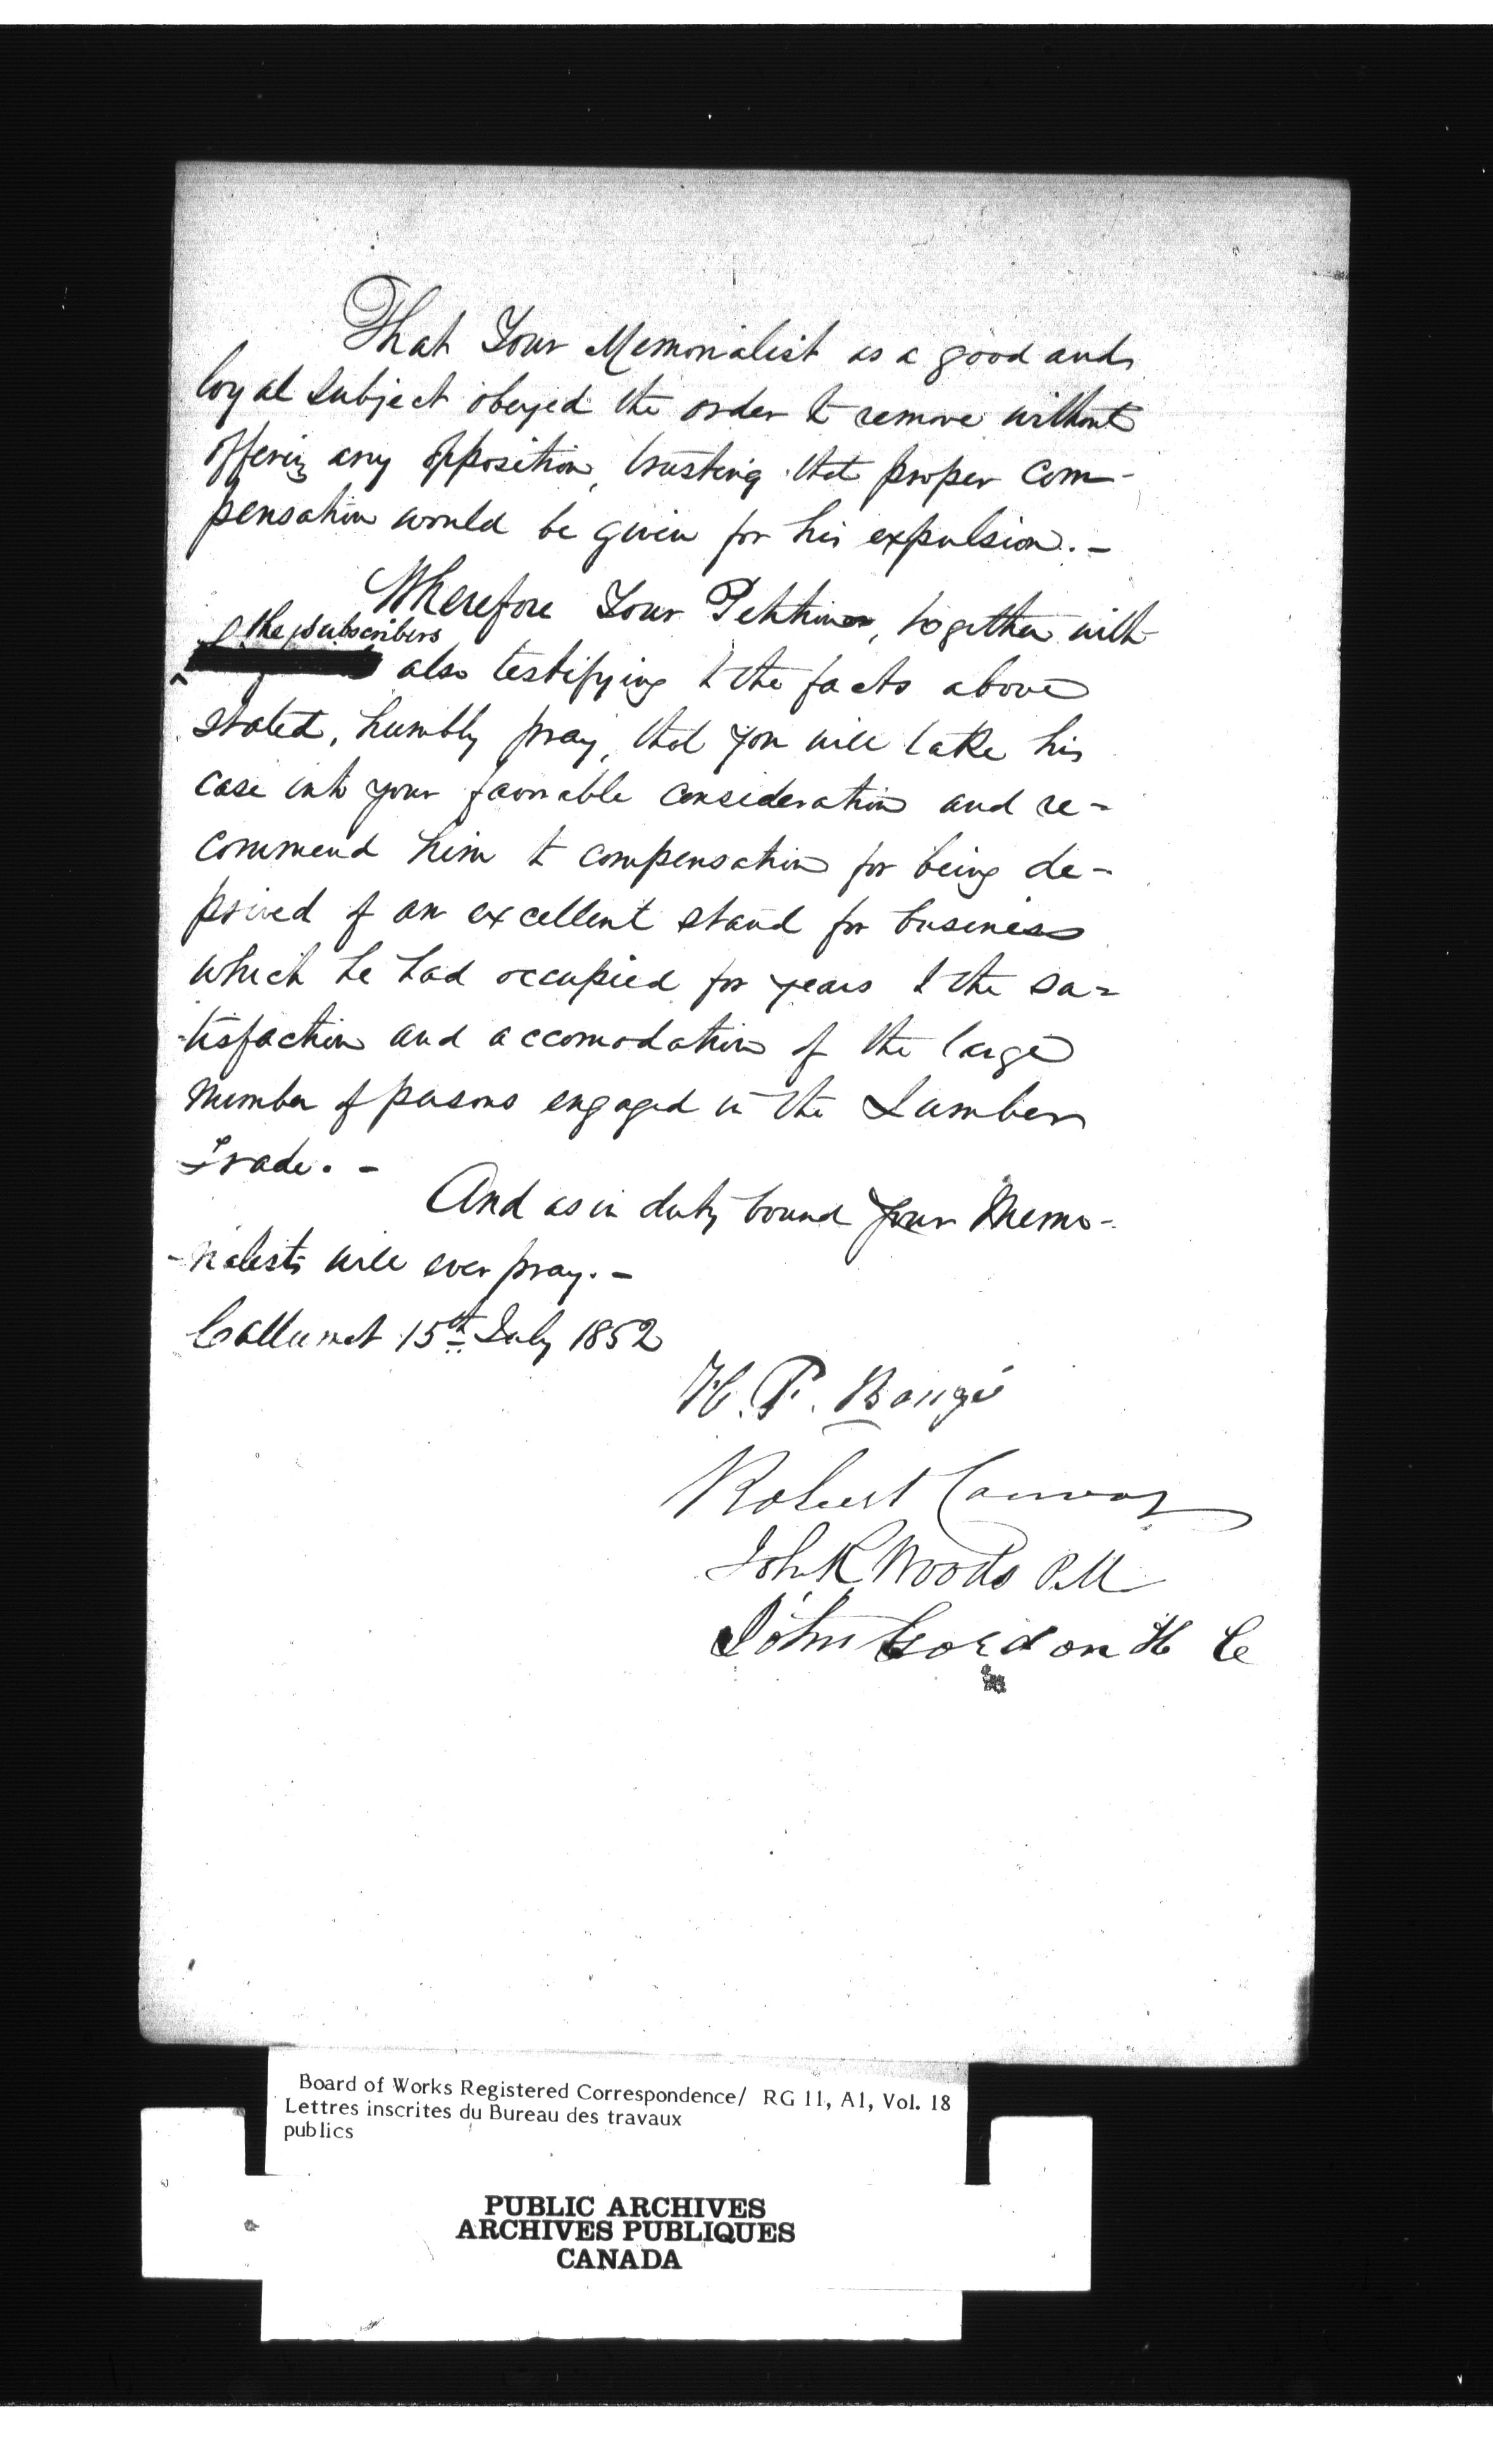 That Your Memorialist as a good and
loyal Subject obeyed the order to remove without
offering any opposition, trusting that proper com-
pensation would be given for his expulsion. -
Wherefore Your Petitioner, together with
the subscribers
also testifying to the facts above
stated, humbly pray, that you will take his
case into your favorable consideration and re-
commend him to compensation for being de-
prived of an excellent stand for business
which he had occupied for years to the sa-
-tisfaction and accomodation of the large
number of persons engaged in the Lumber
Trade. -
And as in duty bound your Memo-
-rialists will ever pray. -
Callumet 15th July 1852
H. P.
Robert Conway
John R Woods P.M
John Gordon H C
Board of Works Registered Correspondence/ RG 11, A1, Vol. 18
Lettres inscrites du Bureau des travaux
publics
PUBLIC ARCHIVES
ARCHIVES PUBLIQUES
CANADA